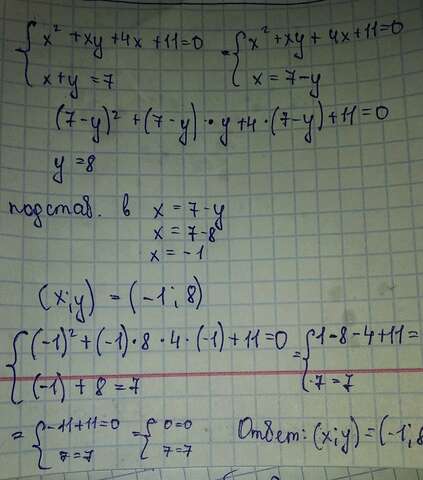 { x² + xy + 4x + 11 = 0 = { x² + xy + 4x + 11 = 0
x + y = 7 x = 7 - y
(7 - y)² + (7 - y) · y + 4 · (7 - y) + 11 = 0
y = 8
подстав. в x = 7 - y
x = 7 - 8
x = -1
(x; y) = (-1; 8)
{ (-1)² + (-1) · 8 · 4 · (-1) + 11 = 0 = { 1 - 8 - 4 + 11 =
(-1) + 8 = 7 7 = 7
= { -11 + 11 = 0 = { 0 = 0 Ответ: (x; y) = (-1; 8
7 = 7 7 = 7